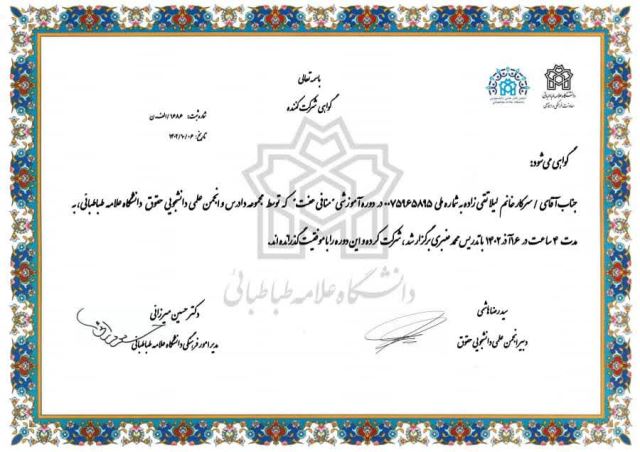 باسمه تعالی
گواهی شرکت کننده
شماره ثبت: ۱۶۸۶/الف‌ن
تاریخ: ۱۴۰۲/۱۰/۰۶
دانشگاه علامه طباطبائی
گواهی می‌شود:
جناب آقای / سرکار خانم لیلا تقی زاده به شماره ملی ۰۰۷۵۹۶۵۸۹۵ در دوره آموزشی "منافی عفت" که توسط مجموعه دادرس و انجمن علمی دانشجویی حقوق دانشگاه علامه طباطبائی، به
مدت ۴ ساعت در ۱۶ آذر ۱۴۰۲ با تدریس محمد عنبری برگزار شد، شرکت کرده و این دوره را با موفقیت گذرانده اند.
دانشگاه علامه طباطبائی
سیدرضا هاشمی
دبیر انجمن علمی دانشجویی حقوق
دکتر حسین میرزائی
مدیر امور فرهنگی دانشگاه علامه طباطبائی